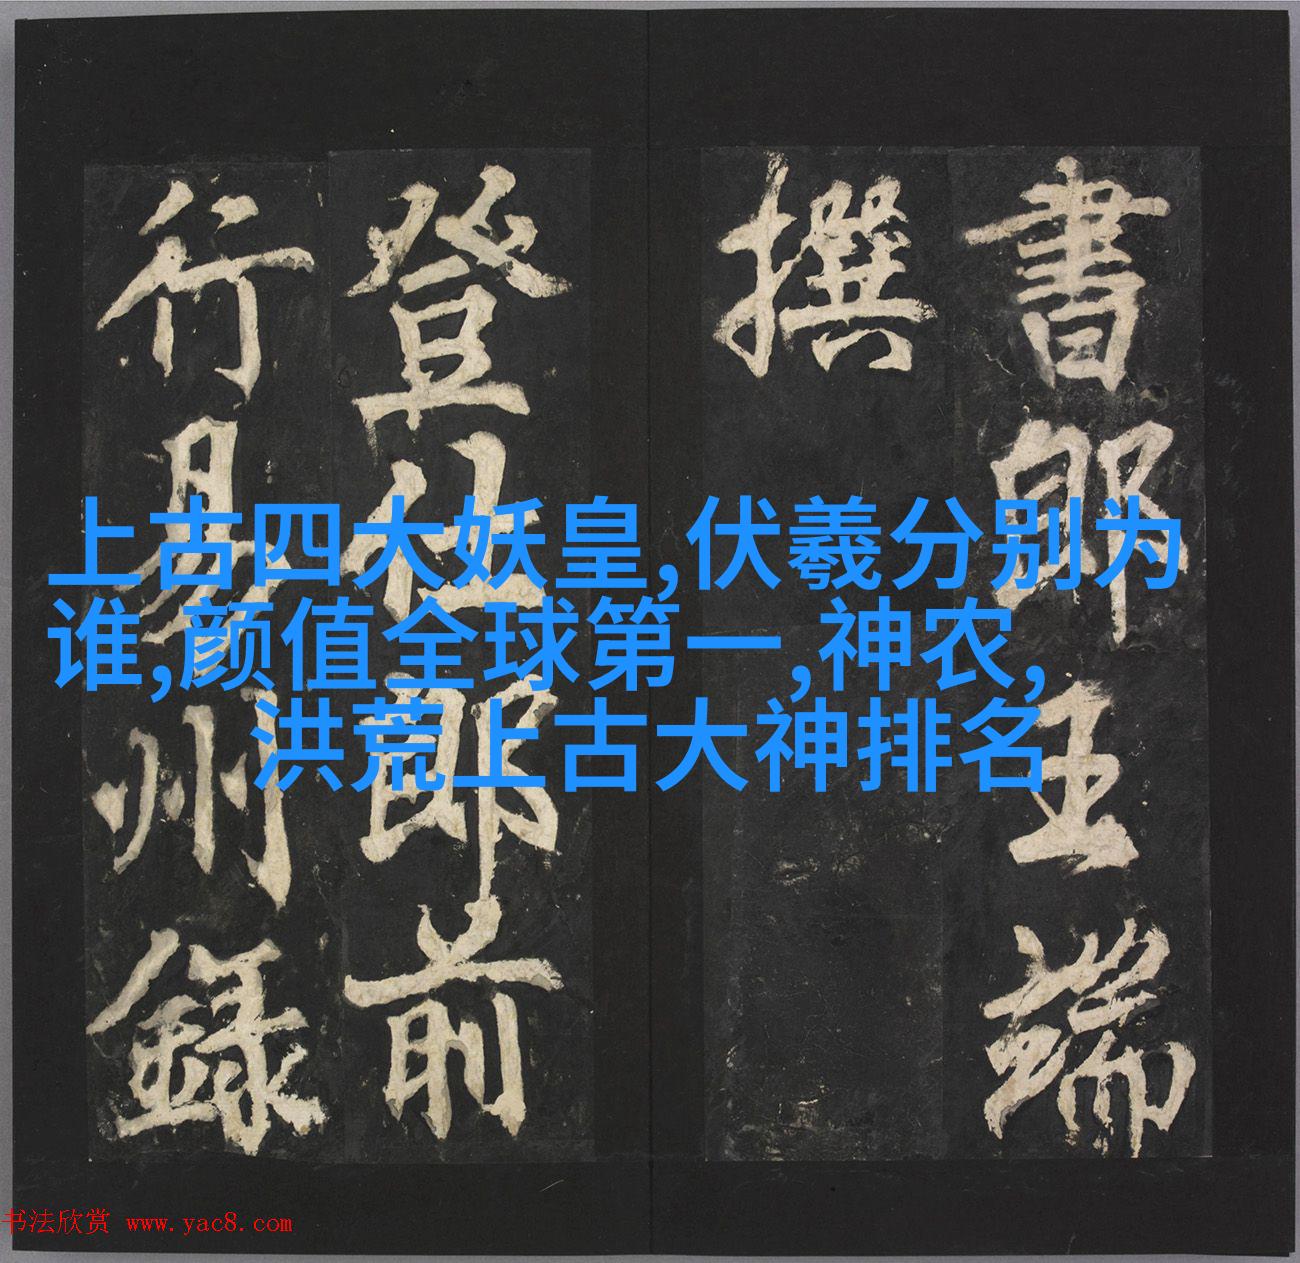 書郎王端
撰
登仕郎前
行易州録
上古四大妖皇,伏羲分别为
谁,颜值全球第一,神农,
洪荒上古大神排名
书法欣赏 www.yac8.com